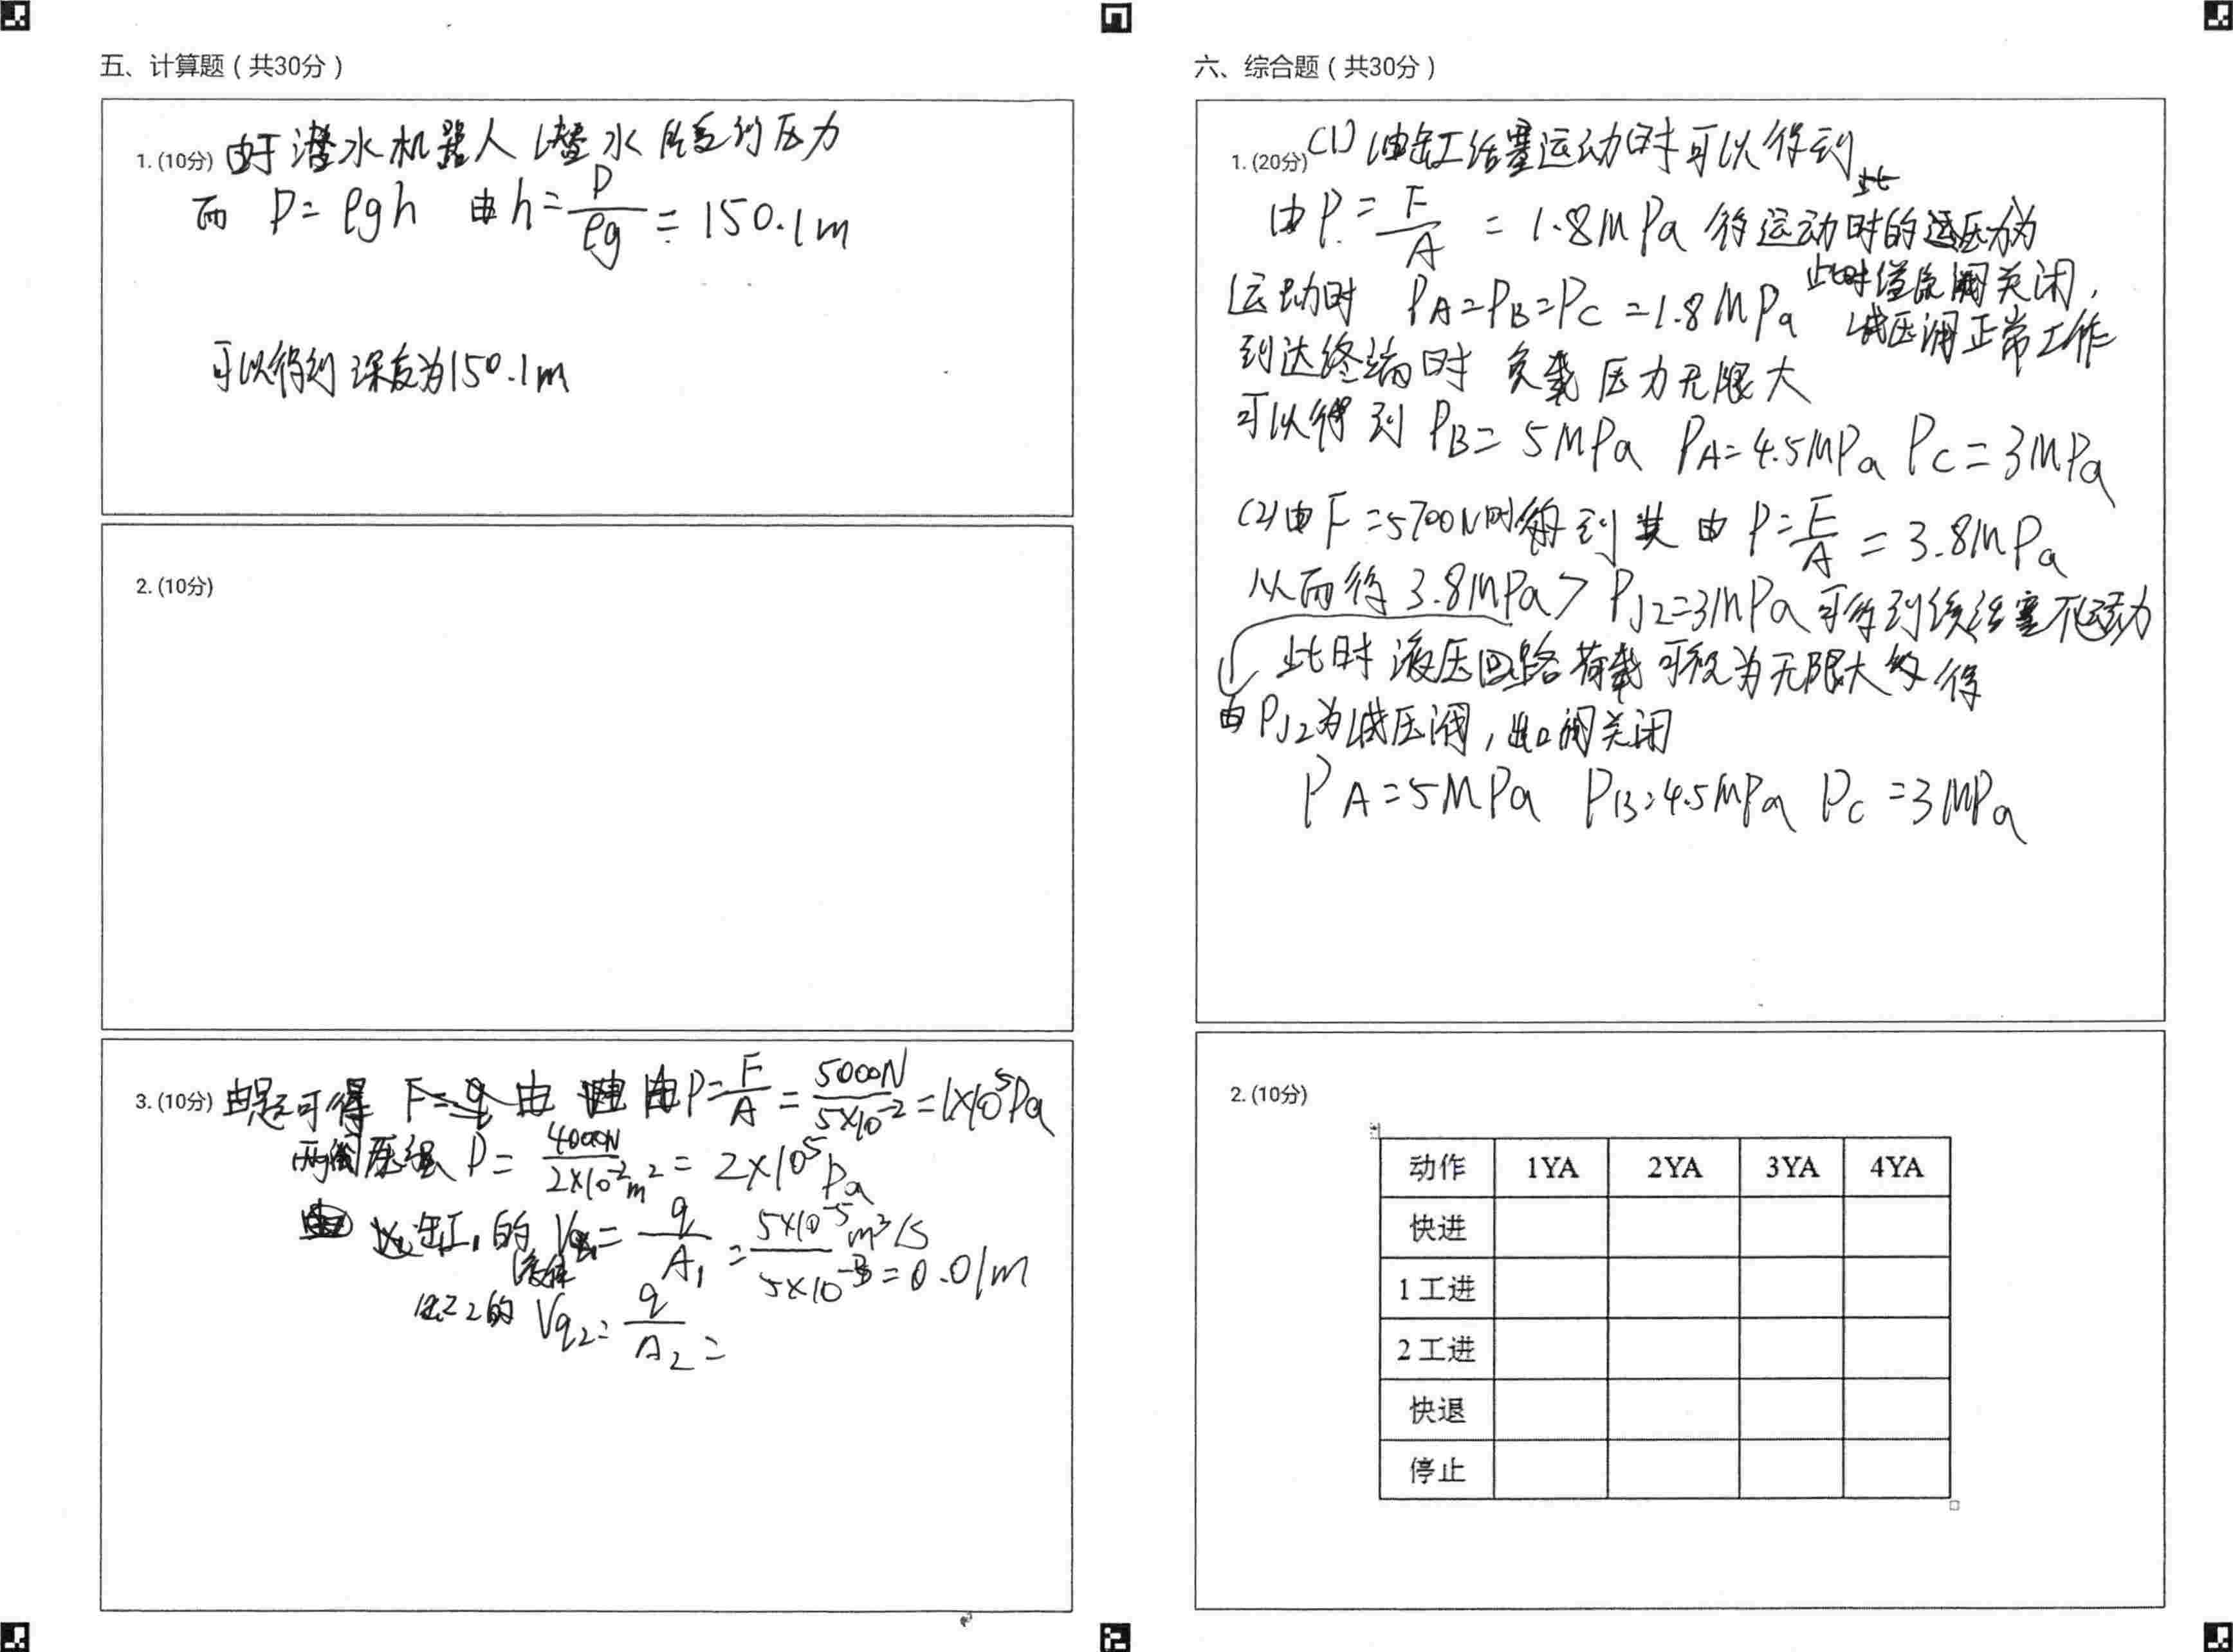 五、计算题（共30分）
1.(10分) 由于潜水机器人潜水所受的压力
而 P=ρgh 由h=P/ρg=150.1m
可以得到深度为150.1m
2.(10分)
3.(10分) 由题可得 由P=F/A=5000N/5×10⁻²=1×10⁵Pa
P=4000N/2×10⁻²m²=2×10⁵Pa
缸1的 =q/A₁=5×10⁻⁵m³/s/5×10⁻³=0.01m
液体
缸2的 Vq₂=q/A₂=
六、综合题（共30分）
1.(20分) (1)油缸活塞运动时可以得到
由P=F/A=1.8MPa 得运动时的
此时溢流阀关闭，
运动时 PA=PB=PC=1.8MPa 减压阀正常工作
到达终端时 负载压力无限大
可以得到 PB=5MPa PA=4.5MPa PC=3MPa
(2)由F=5700N时 得到 由P=F/A=3.8MPa
从而得3.8MPa>PJ2=3MPa可得到该活塞不运动
此时液压回路荷载可视为无限大 得
由PJ2为减压阀，出口阀关闭
PA=5MPa PB=4.5MPa PC=3MPa
2.(10分)
动作 1YA 2YA 3YA 4YA
快进
1工进
2工进
快退
停止